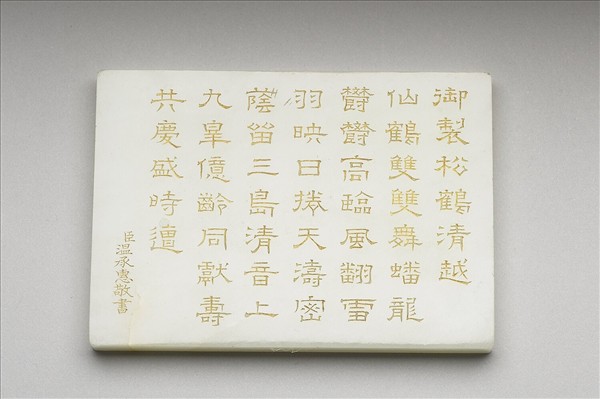 御製松鶴清越
仙鶴雙雙舞蟠龍
欝欝高臨風翻雪
羽映日捲天濤密
蔭留三島清音上
九皋億齡同獻壽
共慶盛時遭
臣温承惠敬書